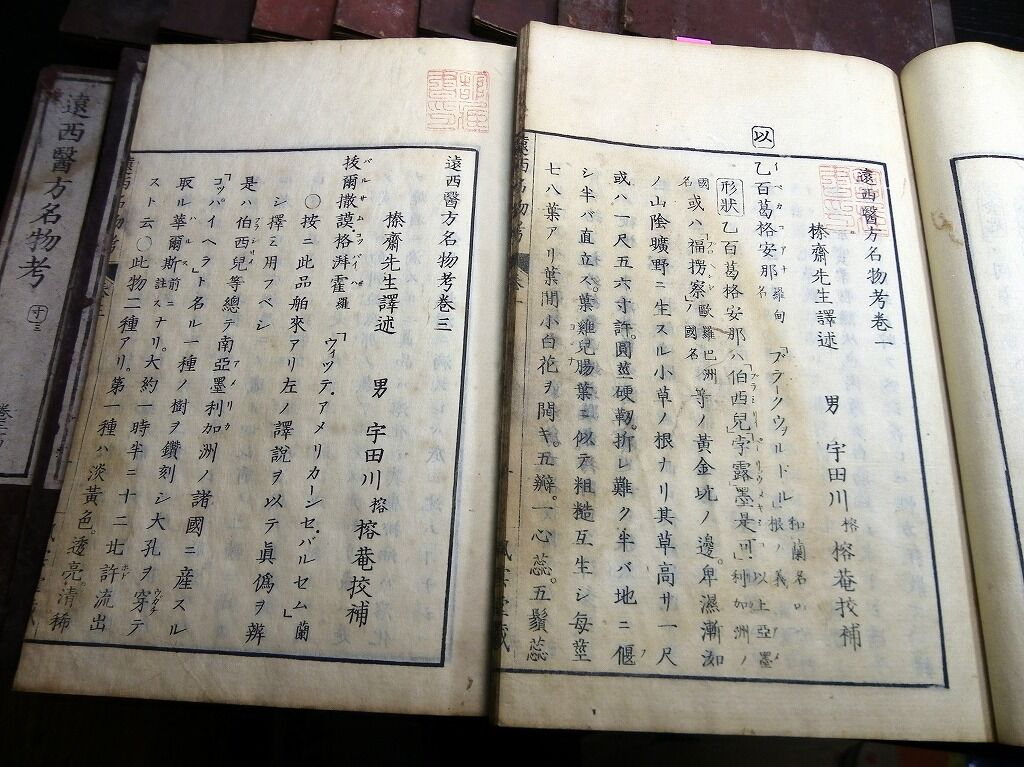 遠西醫方名物考卷一
榛齋先生譯述 男 宇田川榕 榕菴挍補
以
乙百葛格安那 羅甸名 「ブラークウヲルトル」和蘭名。吐根ノ義
形狀 乙百葛格安那ハ伯西兒孛露墨是可以上亞墨利加洲ノ
國名或ハ福拐察歐羅巴洲ノ國名等ノ黃金坑ノ邊。卑濕漸洳
ノ山陰曠野ニ生スル小草ノ根ナリ其草高サ一尺
或ハ一尺五六寸許。圓莖硬靭。折レ難ク半バ地ニ偃
シ半バ直立ス葉雞兒腸葉ニ似テ粗糙互生シ每莖
七八葉アリ葉間小白花ヲ開キ。五瓣。一心蕊。五鬚蕊
遠西醫方名物考卷三
榛齋先生譯述 男 宇田川榕 榕菴挍補
拔爾撒謨格湃霍 羅 「ヴィッテ、アメリカーンセ、バルセム」蘭
〇按ニ此品舶來アリ左ノ譯說ヲ以テ眞僞ヲ辨
シ擇ミ用フベシ
是ハ伯西兒等總テ南亞墨利加洲ノ諸國ニ産スル
「コッパイヘラ」ト名ル一種ノ樹ヲ鑽刻シ大孔ヲ穿テ
取ル華爾斯前ニ註スナリ。大約一時半ニ十二㐀許流出
スト云〇此物二種アリ。第一種ハ淡黃色。透亮。清稀
遠西醫方名物考